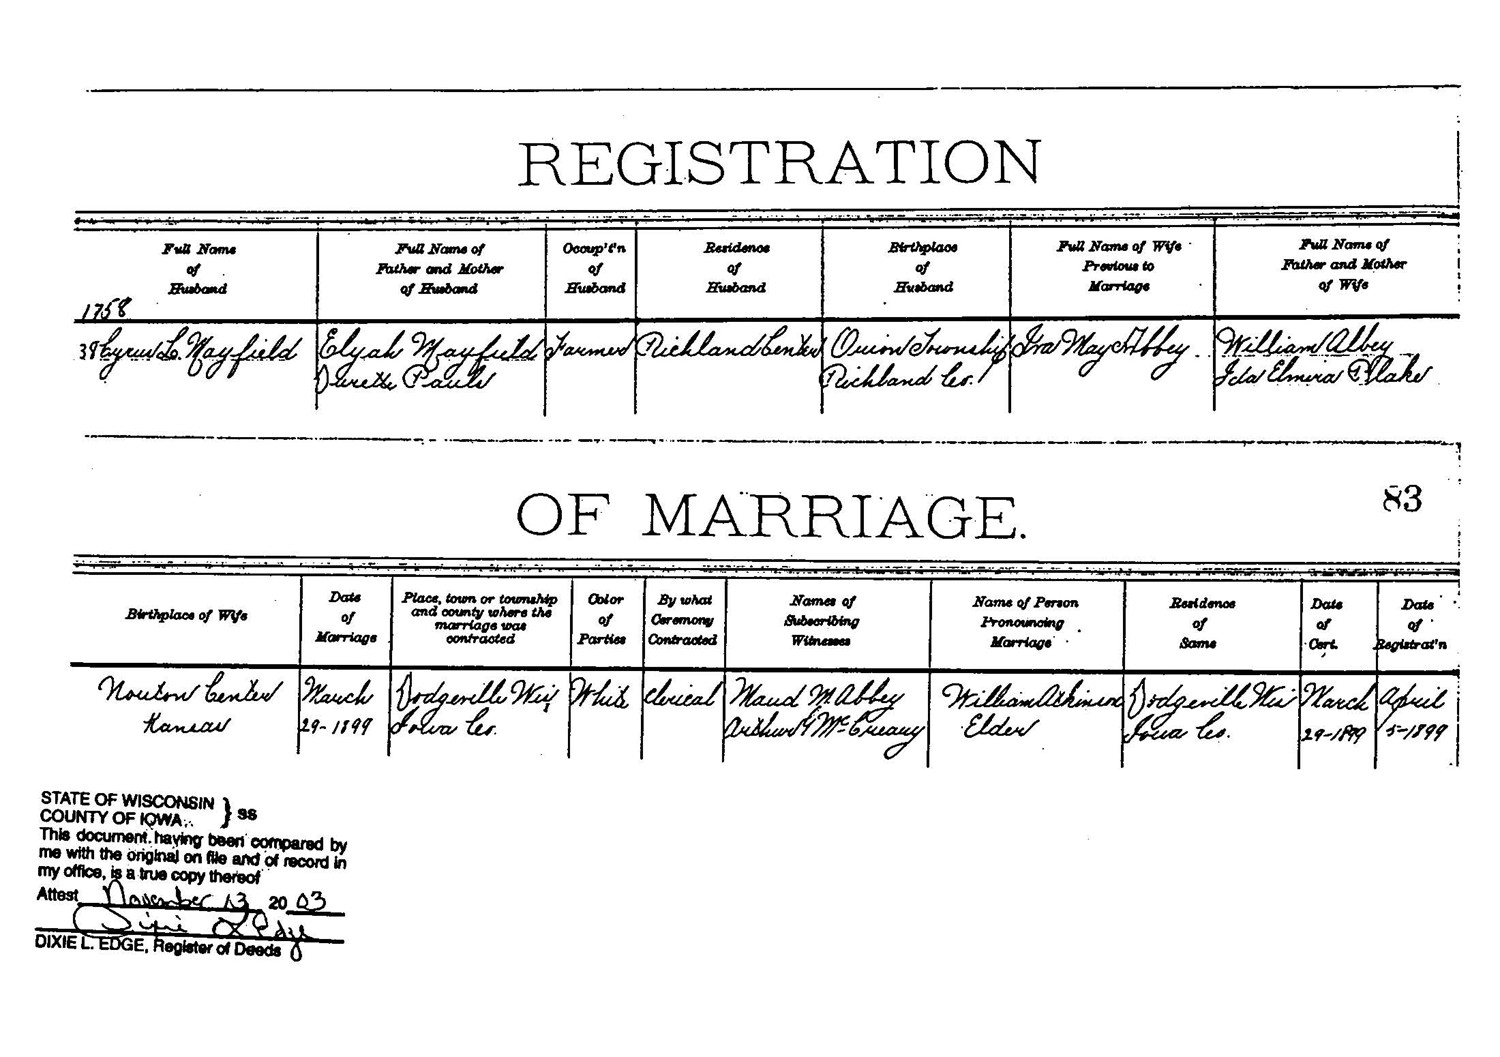 REGISTRATION
Full Name of Husband
Full Name of Father and Mother of Husband
Occup't'n of Husband
Residence of Husband
Birthplace of Husband
Full Name of Wife Previous to Marriage
Full Name of Father and Mother of Wife
1758
38 Cyrus L. Mayfield
Elijah Mayfield
Pauls
Farmer
Richland Center
Orion Township
Richland Co.
Iva May Abbey
William Abbey
Ida Elmira Blake
OF MARRIAGE.
83
Birthplace of Wife
Date of Marriage
Place, town or township and county where the marriage was contracted
Color of Parties
By what Ceremony Contracted
Names of Subscribing Witnesses
Name of Person Pronouncing Marriage
Residence of Same
Date of Cert.
Date of Registrat'n
Nouton Center
Kansas
March
29-1899
Dodgeville Wis
Iowa Co.
White
Clerical
Maud M. Abbey
Arthur McCreary
William Atkinson
Elder
Dodgeville Wis
Iowa Co.
March
29-1899
April
5-1899
STATE OF WISCONSIN } ss
COUNTY OF IOWA
This document having been compared by
me with the original on file and of record in
my office, is a true copy thereof
Attest November 13 2003
Dixie L Edge
DIXIE L. EDGE, Register of Deeds